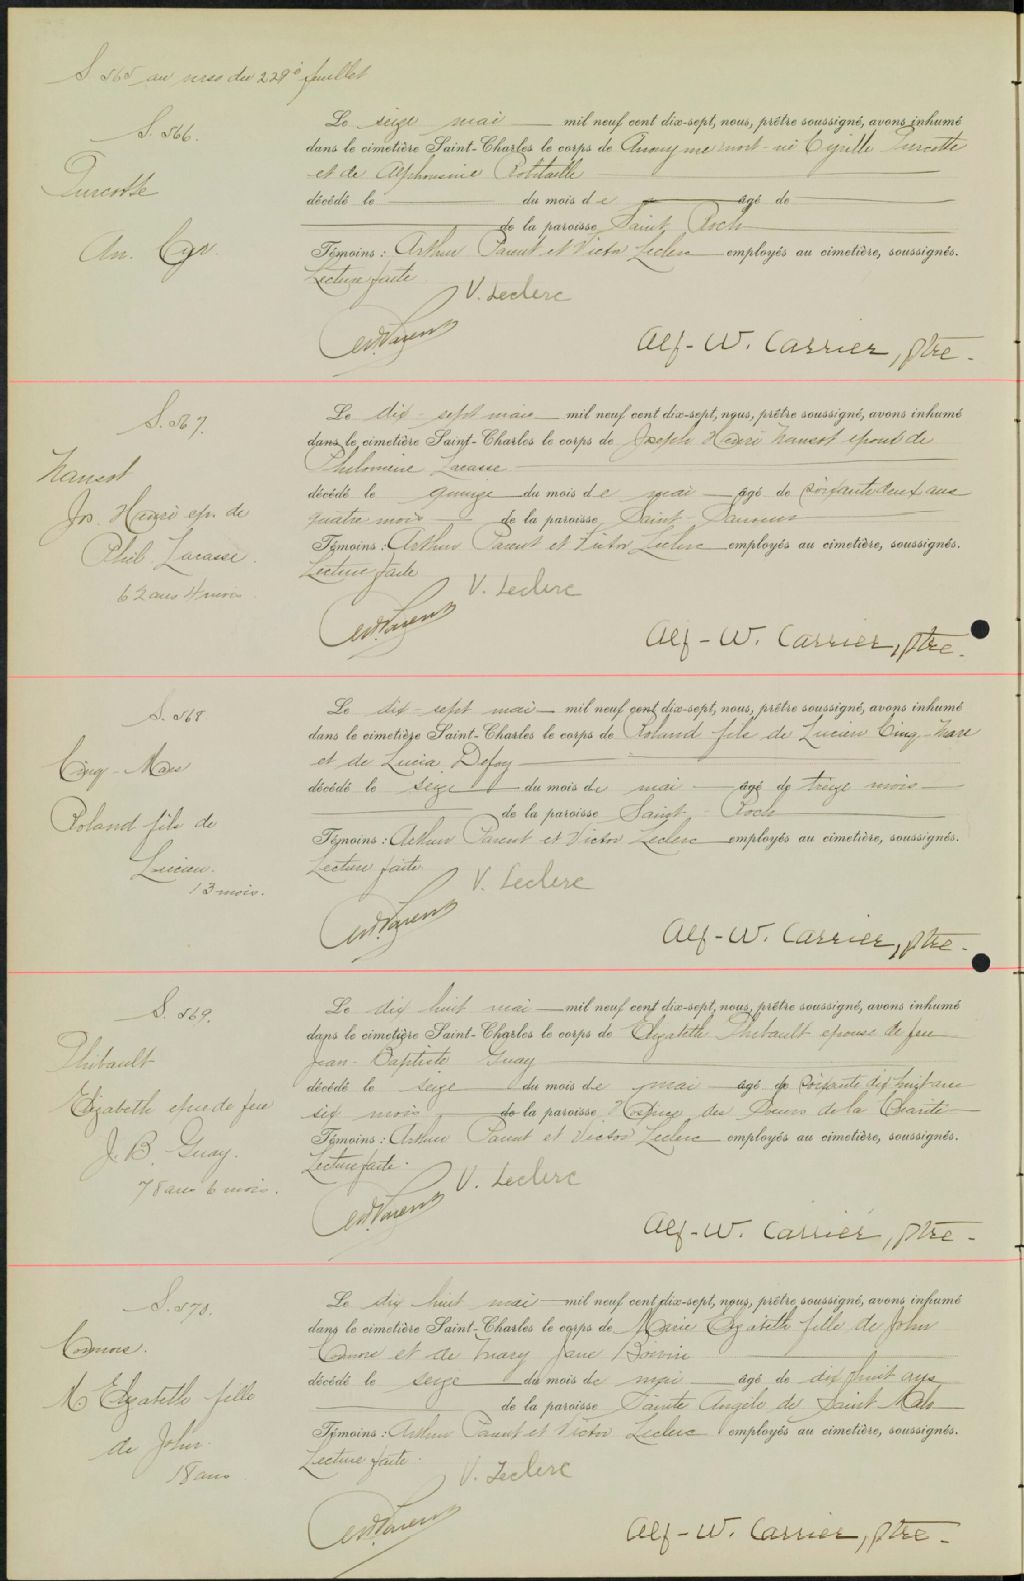 S 565 au verso du 229e feuillet
S. 566.
Turcotte
An. Cyr.
Le seize mai mil neuf cent dix-sept, nous, prêtre soussigné, avons inhumé
dans le cimetière Saint-Charles le corps de Anonyme mort-né Cyrille Turcotte
et de Alphonsine Robitaille
décédé le du mois de âgé de
de la paroisse Saint Roch
Témoins : Arthur Parent et Victor Leclerc employés au cimetière, soussignés.
Lecture faite
V. Leclerc
Art. Parent
Alf-W. Carrier, ptre.
S. 567.
Nansot
Jos. Henri ep. de
Phil. Lacasse.
62 ans 4 mois.
Le dix-sept mai mil neuf cent dix-sept, nous, prêtre soussigné, avons inhumé
dans le cimetière Saint-Charles le corps de Joseph Henri Nansot epoux de
Philomène Lacasse
décédé le quinze du mois de mai âgé de soixante deux ans
quatre mois de la paroisse Saint-Sauveur
Témoins : Arthur Parent et Victor Leclerc employés au cimetière, soussignés.
Lecture faite
V. Leclerc
Art. Parent
Alf-W. Carrier, ptre.
S. 568
Cinq-Mars
Roland fils de
Lucien.
13 mois.
Le dix-sept mai mil neuf cent dix-sept, nous, prêtre soussigné, avons inhumé
dans le cimetière Saint-Charles le corps de Roland fils de Lucien Cinq-Mars
et de Lucia Defoy
décédé le seize du mois de mai âgé de treize mois
de la paroisse Saint-Roch
Témoins : Arthur Parent et Victor Leclerc employés au cimetière, soussignés.
Lecture faite
V. Leclerc
Art. Parent
Alf-W. Carrier, ptre.
S. 569.
Thibault
Elizabeth epse de feu
J. B. Guay.
78 ans 6 mois.
Le dix huit mai mil neuf cent dix-sept, nous, prêtre soussigné, avons inhumé
dans le cimetière Saint-Charles le corps de Elizabeth Thibault epouse de feu
Jean-Baptiste Guay
décédé le seize du mois de mai âgé de soixante dix huit ans
six mois de la paroisse Hospice des Soeurs de la Charité
Témoins : Arthur Parent et Victor Leclerc employés au cimetière, soussignés.
Lecture faite.
V. Leclerc
Art. Parent
Alf-W. Carrier, ptre.
S. 570.
Connors.
M. Elizabeth fille
de John.
18 ans
Le dix huit mai mil neuf cent dix-sept, nous, prêtre soussigné, avons inhumé
dans le cimetière Saint-Charles le corps de Marie Elizabeth fille de John
Connors et de Mary Jane Boivin
décédé le seize du mois de mai âgé de dix huit ans
de la paroisse Sainte Angèle de Saint Malo
Témoins : Arthur Parent et Victor Leclerc employés au cimetière, soussignés.
Lecture faite.
V. Leclerc
Art. Parent
Alf-W. Carrier, ptre.